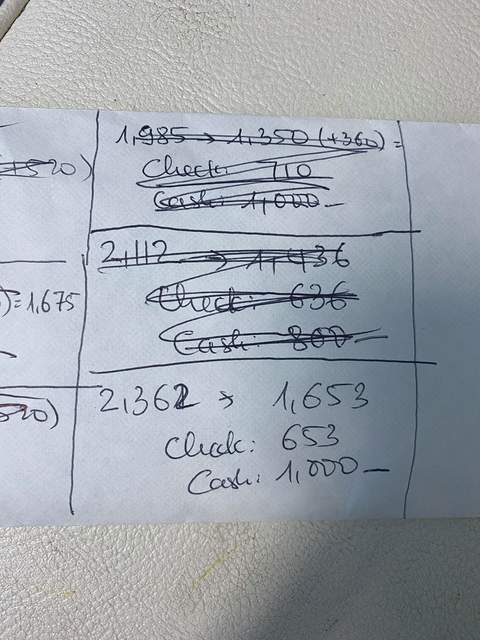 +520)
1,985 → 1,350 (+360) =
Check: 710
Cash: 1,000 –
2,112 → 1,436
Check: 636
Cash: 800 –
) = 1,675
520)
2,362 → 1,653
Check: 653
Cash: 1,000 –